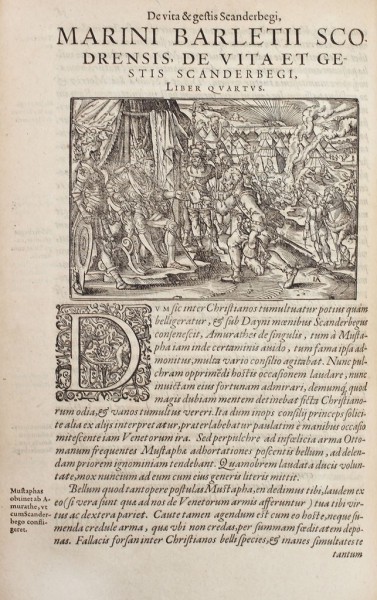 De vita & gestis Scanderbegi,
MARINI BARLETII SCO-
DRENSIS, DE VITA ET GE-
STIS SCANDERBEGI,
LIBER QVARTVS.
IA
DVM sic inter Christianos tumultuatur potius quàm
belligeratur, & sub Dayni mœnibus Scanderbegus
consenescit, Amurathes de singulis, tum à Musta-
pha iam inde certaminis auido, tum fama ipsa ad-
monitus, multa vario consilio agitabat. Nunc pul-
chram opprimēdi hostis occasionem laudare, nunc
inuictam eius fortunam admirari, demumq; quod
magis dubiam mentem detinebat ficta Christiano-
rum odia, & vanos tumultus vereri. Ita dum inops consilij princeps solici-
te alia ex alijs interpretatur, præterlabebatur paulatim è manibus occasio
mitescente iam Venetorum ira. Sed perpulchre ad infelicia arma Otto-
manum frequentes Mustapha adhortationes poscentis bellum, ad delen-
dam priorem ignominiam tendebant. Quamobrem laudata ducis volun-
tate, mox nuncium ad eum cum eius generis literis mittit.
Bellum quod tantopere postulas Mustapha, en dedimus tibi, laudem ex
eo (si vera sunt quæ ad nos de Venetorum armis afferuntur) tua tibi vir-
tus ac dextera pariet. Caute tamen agendum est cum eo hoste, neque su-
menda credule arma, quæ vbi non credas, per summam fœditatem depo-
nas. Fallacis forsan inter Christianos belli species, & inanes simultates te
tantum
Mustaphas
obtinet ab A-
murathe, vt
cum Scander-
bego confli-
geret.